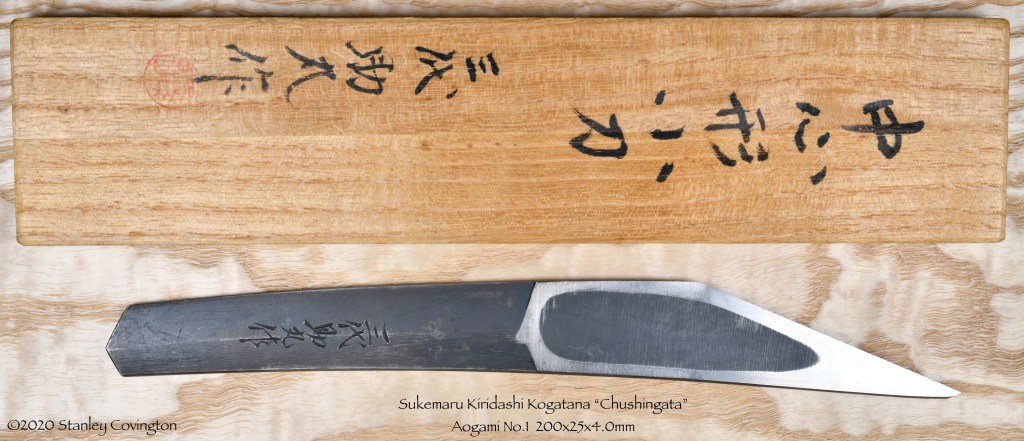 中心形小刀
三代助丸作
三代助丸作
Sukemaru Kiridashi Kogatana “Chushingata”
Aogami No.1 200x25x4.0mm
©2020 Stanley Covington